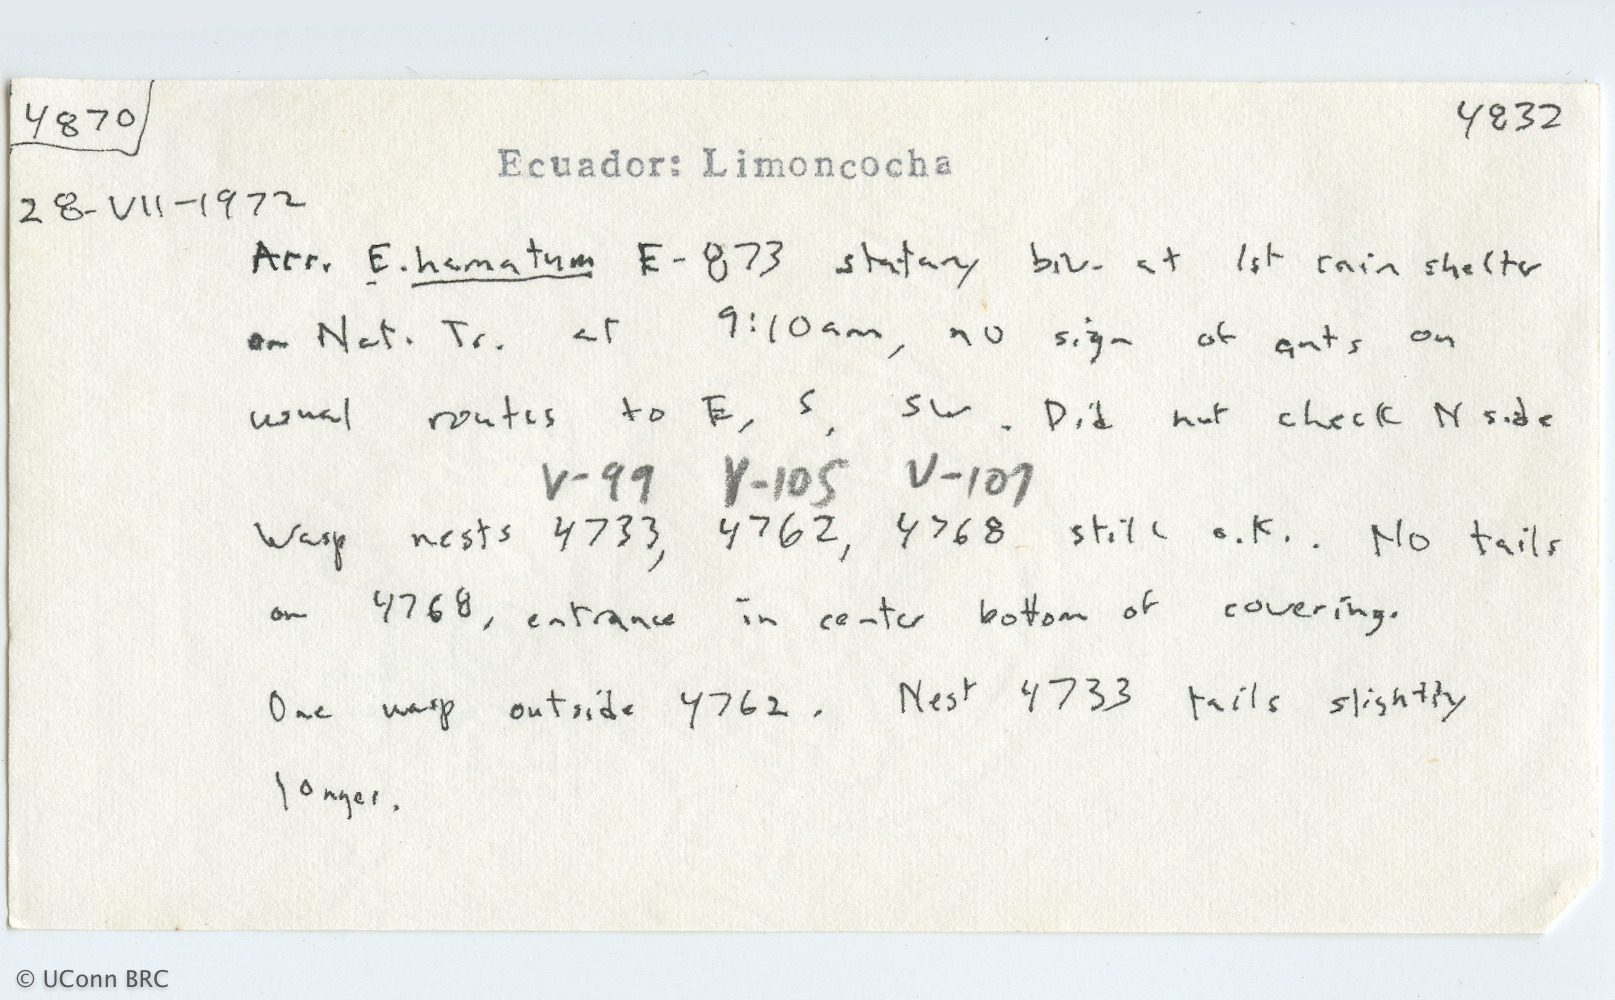 4870
4832
Ecuador: Limoncocha
28-VII-1972
Arr. E. hamatum E-873 statary biv. at 1st rain shelter
on Nat. Tr. at 9:10am, no sign of ants on
usual routes to E, S, SW. Did not check N side
V-99 V-105 V-107
Wasp nests 4733, 4762, 4768 still o.K.. No tails
on 4768, entrance in center bottom of covering.
One wasp outside 4762. Nest 4733 tails slightly
longer.
© UConn BRC